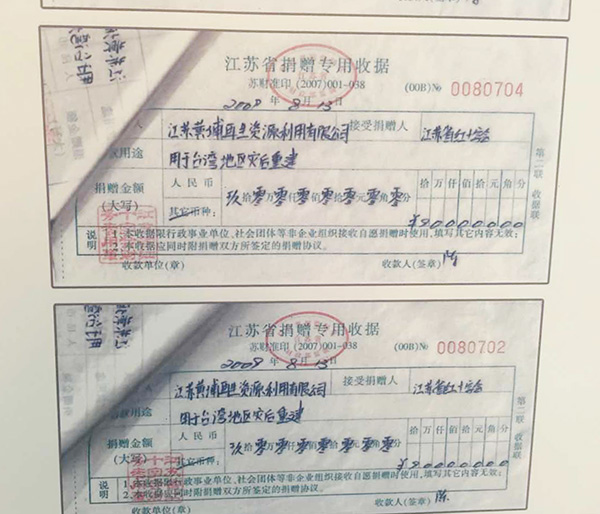 江苏省捐赠专用收据
苏财准印(2007)001-038
(00B)№ 0080704
2009年8月13日
江苏黄埔再生资源利用有限公司 接受捐赠人 江苏省红十字会
款用途 用于台湾地区灾后重建
捐赠金额 人民币 玖拾零万零仟零佰零拾零元零角零分 拾万仟佰拾元角分
(大写) 其它币种:
说明 1.本收据限行政事业单位、社会团体等非企业组织接收自愿捐赠时使用,填写其它内容无效;
2.本收据应同时附捐赠双方所签定的捐赠协议。
收款单位(章) 收款人(签章) 陈
第二联 收据联
江苏省捐赠专用收据
苏财准印(2007)001-038
(00B)№ 0080702
2009年8月13日
江苏黄埔再生资源利用有限公司 接受捐赠人 江苏省红十字会
款用途 用于台湾地区灾后重建
捐赠金额 人民币 玖拾零万零仟零佰零拾零元零角零分 拾万仟佰拾元角分
(大写) 其它币种:
说明 1.本收据限行政事业单位、社会团体等非企业组织接收自愿捐赠时使用,填写其它内容无效;
2.本收据应同时附捐赠双方所签定的捐赠协议。
收款单位(章) 收款人(签章) 陈
第二联 收据联